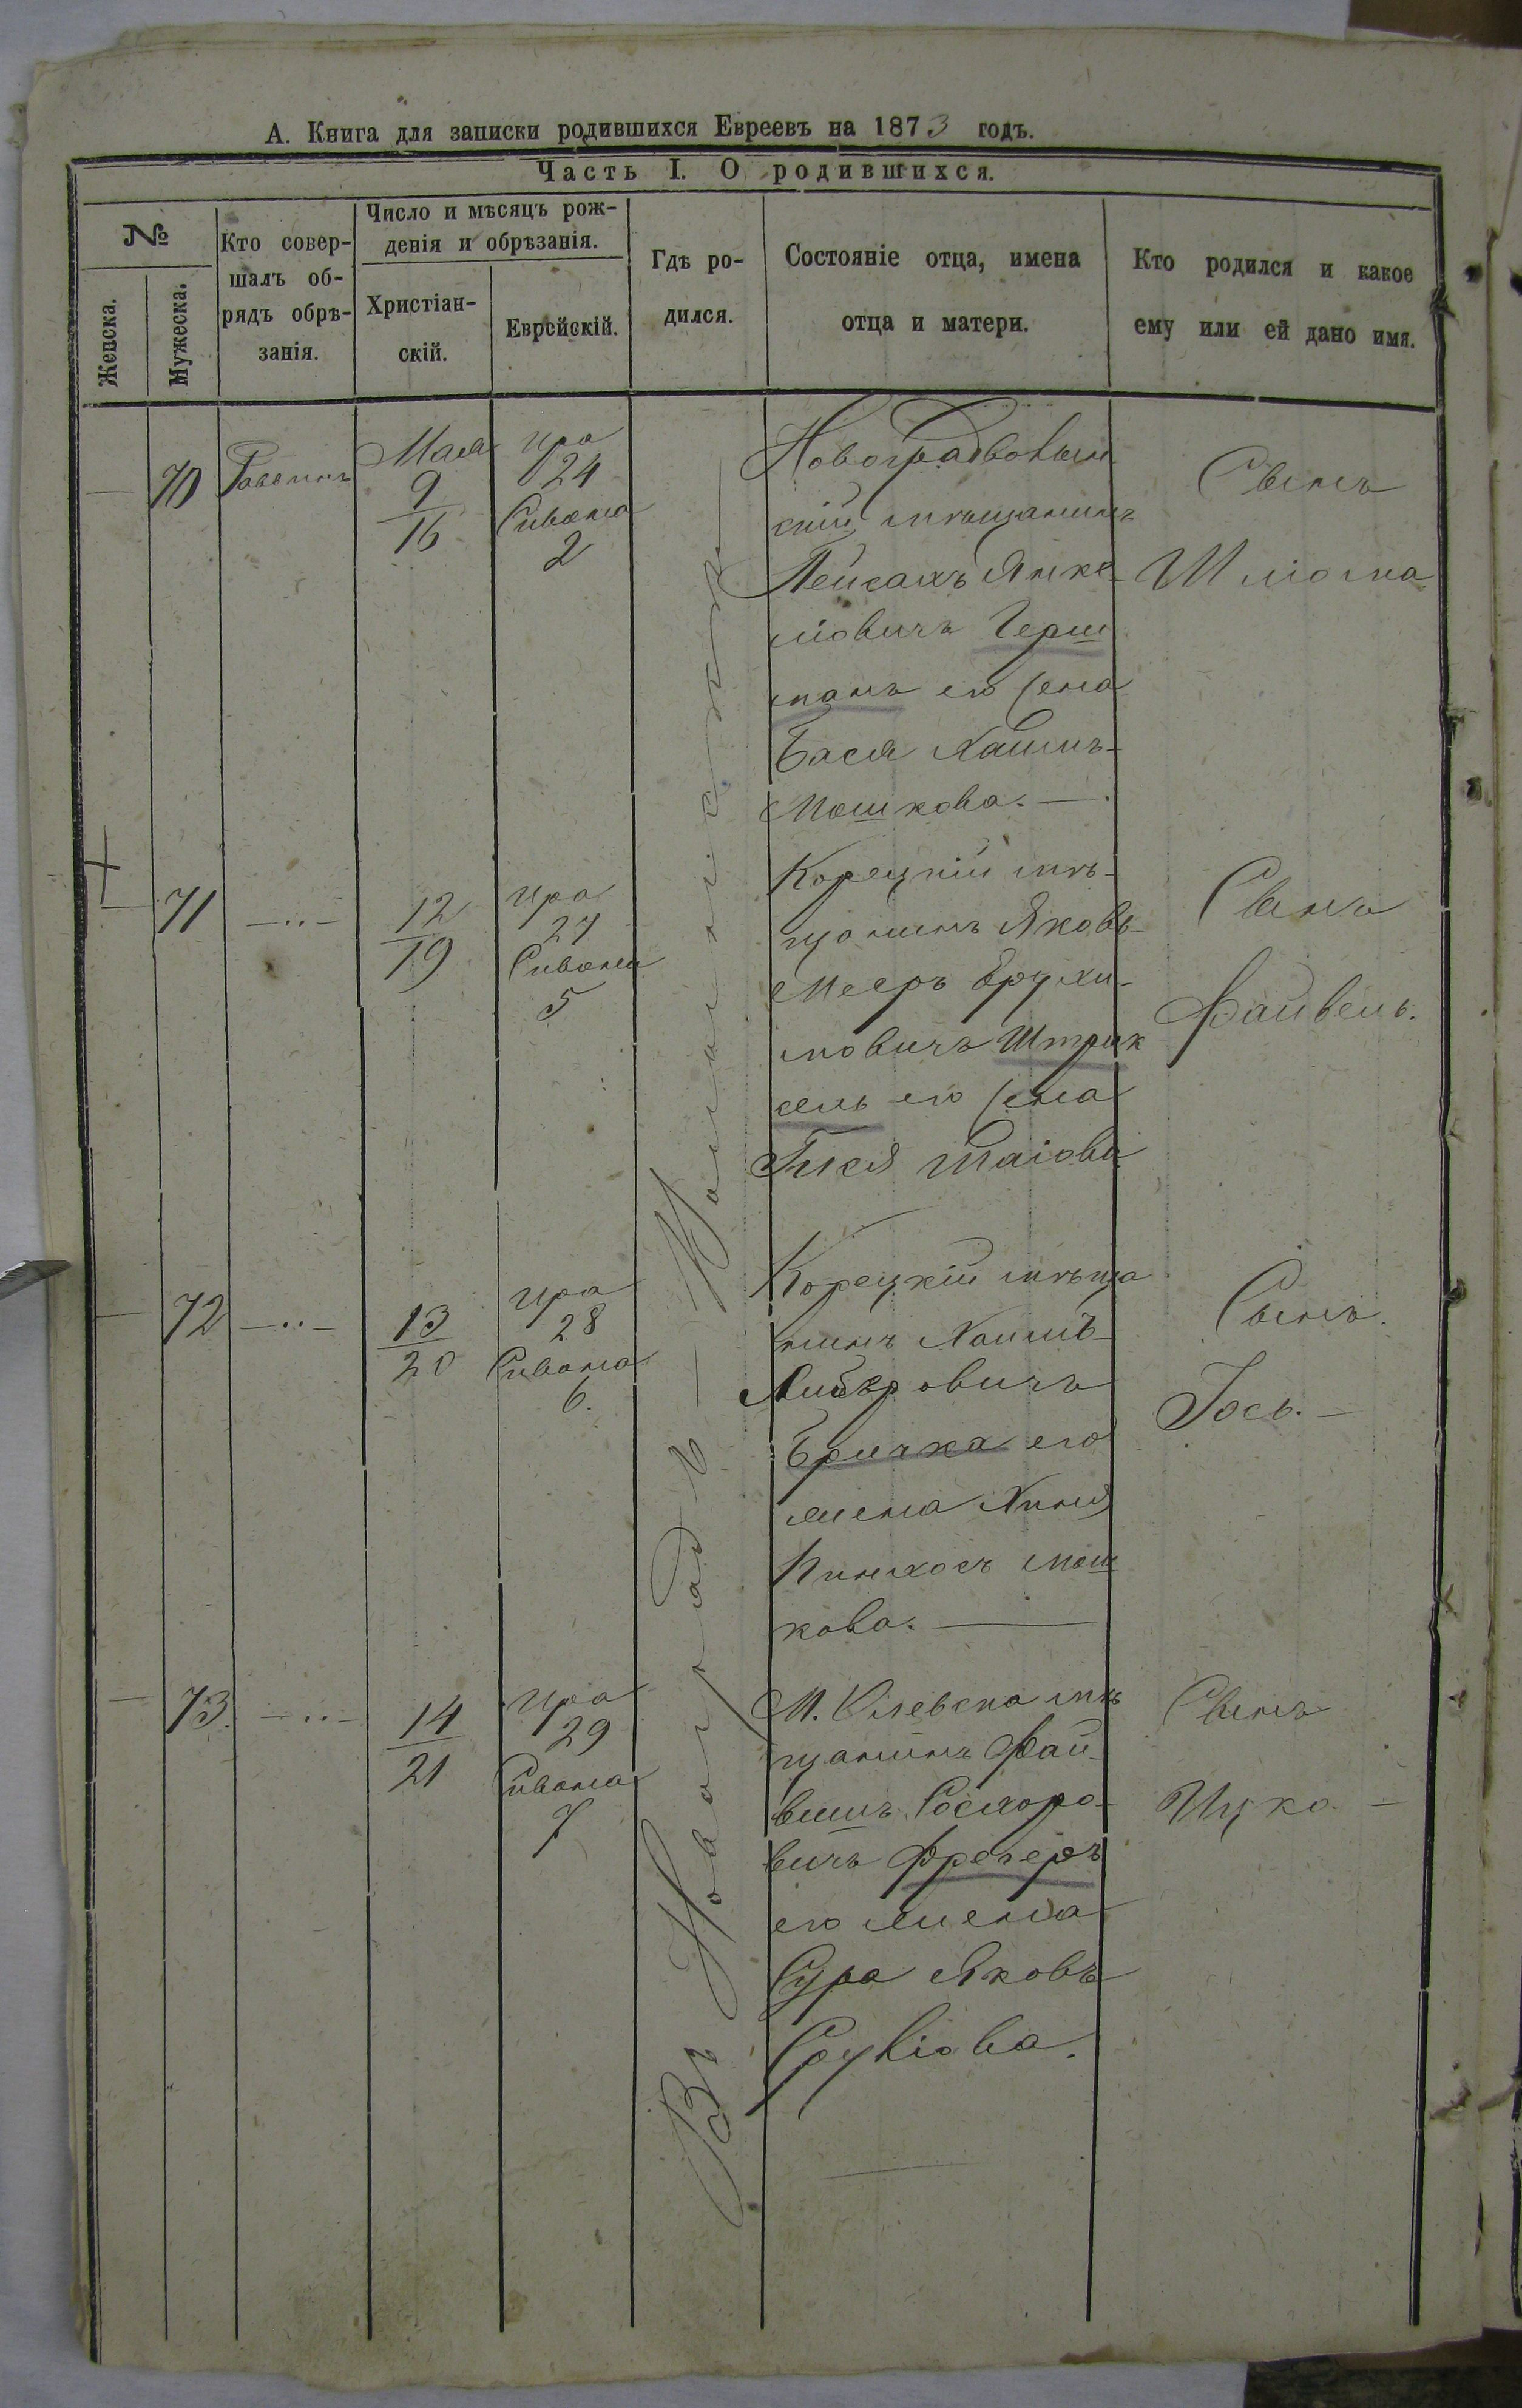 А. Книга для записки родившихся Евреевъ на 1873 годъ.
Часть I. О родившихся.
№
Женска.
Мужеска.
Кто совер-
шалъ об-
рядъ обрѣ-
занія.
Число и мѣсяцъ рож-
денія и обрѣзанія.
Христіан-
скій.
Еврейскій.
Гдѣ ро-
дился.
Состояніе отца, имена
отца и матери.
Кто родился и какое
ему или ей дано имя.
Въ Новоградъ-Волынскѣ
—
70
Раввинъ
Мая
9
16
Ира
24
Сивона
2
Новоградволын
скій мѣщанинъ
Пейсахъ Янке-
ліовичъ Герш
манъ его жена
Бася Хаимъ-
Мошкова. —
Сынъ
Шліома
71
— „ —
12
19
Ира
27
Сивона
5
Корецкій мѣ-
щанинъ Яковъ-
Мееръ Срухи-
мовичъ Штрик
сель его жена
Гися Шаіова
Сынъ
Файвель.
—
72
— „ —
13
20
Ира
28
Сивона
6.
Корецкій мѣща
нинъ Хаимъ-
Лейзеровичъ
Бричка его
жена Хиня
Пинхосъ Мош
кова. —
Сынъ.
Іось. —
—
73.
— „ —
14
21
Ира
29
Сивона
7
М. Олевска мѣ
щанинъ Фай-
вишъ
вичъ Фрегеръ
его жена
Сура Яковъ
Сруліова.
Сынъ
Ицко. —